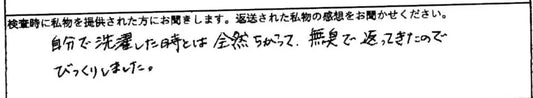 検査時に私物を提供された方にお聞きします。返送された私物の感想をお聞かせください。
自分で洗濯した時とは全然ちがって、無臭で返ってきたので
びっくりしました。